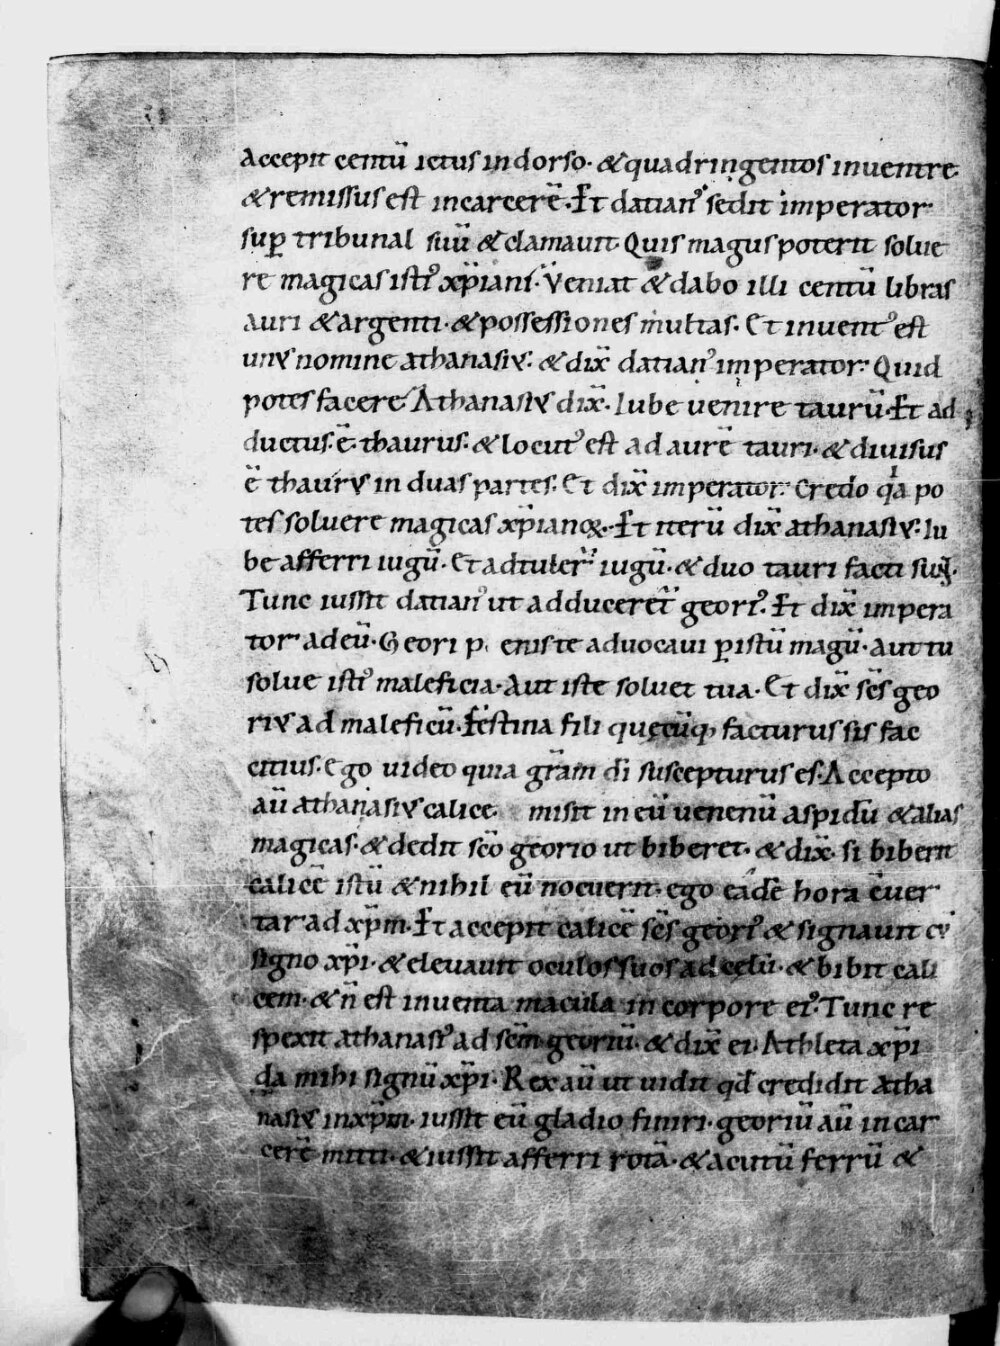 Accepit centū ictus in dorso· & quadringentos inuentre·
& remissus est incarcerē· Et datian᾽ sedit imperator
suꝑ tribunal suū & clamauit Quis magus poterit solue
re magicas isti᾽ xp̄iani· Veniat & dabo illi centū libras
auri & argenti· & possessiones multas· Et inuent᾽ est
un᾽ nomine athanasi᾽· & dix̄ datian᾽ imperator· Quid
potes facere Athanasi᾽ dix̄· Iube uenire taurū· Et ad
ductus· ē thaurus· & locut᾽ est ad aurē tauri· & diuisus
ē thaur᾽ in duas partes· Et dix̄ imperator· Credo qa po
tes soluere magicas xp̄ianoꝝ· Et iterū dix̄ athanasi᾽· Iu
be afferri iugū· Et adtuler̄ iugū· & duo tauri facti sun̄t·
Tunc iussit datian᾽ ut adducerēt geori᾽· Et dix̄ impera
tor ad eū· Geori p eniste aduocaui ꝑ istū magū· Aut tu
solue isti᾽ maleficia· Aut iste soluet tua· Et dix̄ sc̄s geo
ri᾽ ad maleficū· Festina fili quęcūq; facturus sis fac
citius· Ego uideo quia gr̄am dī suscepturus es· Accepto
aū athanasi᾽ calice misit in eū uenenū aspidū & alias
magicas· & dedit sc̄o georio ut biberet· & dix̄· si biberit
calicē istū & nihil eū nocuerit· ego eadē hora cōuer
tar ad xp̄m· Et accepit calicē sc̄s geori᾽ & signauit cū
signo xp̄i· & eleuauit oculos suos ad celū· & bibit cali
cem· & n̄ est inuenta macula in corpore ei᾽· Tunc re
spexit athanasi᾽ ad sc̄m georiū· & dix̄ ei· Athleta xp̄i
da mihi signū xp̄i· Rex aū ut uidit qd̄ credidit atha
nasi᾽ in xp̄m· iussit eū gladio finiri· georiū aū in car
cerē mitti· & iussit afferri rotā· & acutū ferrū &